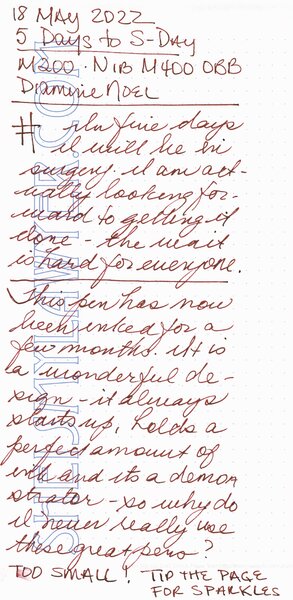 18 MAY 2022
5 DAYS TO S-DAY
M200 · NIB M400 OBB
DIAMINE NOEL
# In five days
I will be in
surgery. I am act-
ually looking for-
ward to getting it
done - the wait
is hard for everyone.
This pen has now
been inked for a
few months. It is
a wonderful de-
sign - it always
starts up, holds a
perfect amount of
ink and its a demon
strator - so why do
I never really use
these great pens?
TOO SMALL! TIP THE PAGE
FOR SPARKLES
SHEISMYLAWYER.COM